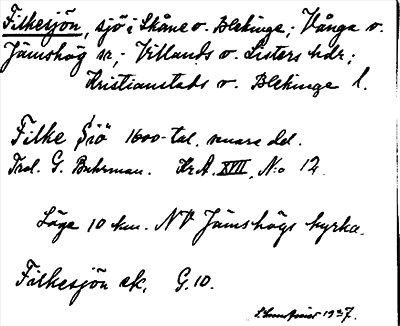 Filkesjön, sjö i Skåne o. Blekinge; Vånga o.
Jämshög sn; Villands o. Listers hdr;
Kristianstads o. Blekinge l.
Filke Siö 1600-tal, senare del.
Trol. G. Buhrman. Kr.A. XVII, N:o 12.
Läge 10 km. NV Jämshögs kyrka.
Filkesjön ek. G.10.
1937.